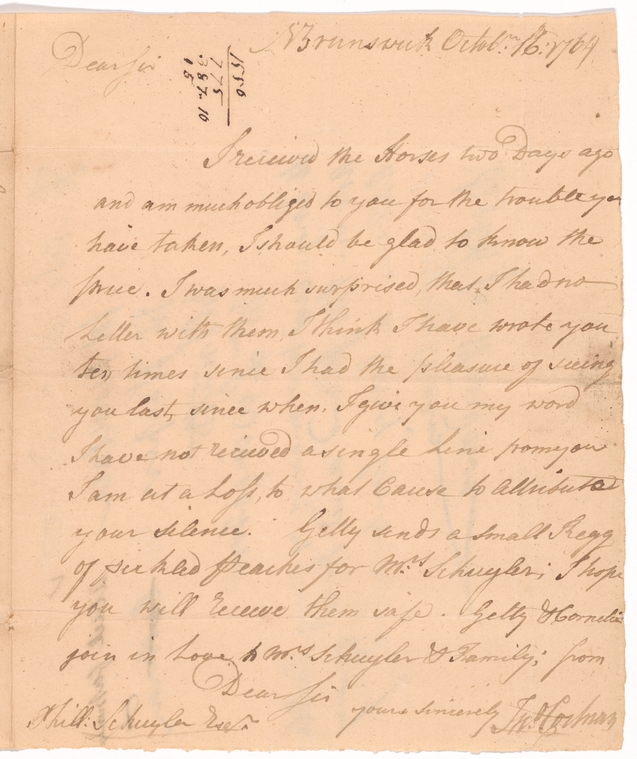 N Brunswick Octobr. 16. 1769
Dear Sir
1550
775
387.10
15
I received the Horses two Days ago
and am much obliged to you for the trouble you
have taken, I should be glad to know the
price. I was much surprised, that I had no
Letter with them, I think I have wrote you
ten times since I had the pleasure of seeing
you last, since when, I give you my word
I have not recieved a single Line from you
I am at a Loss, to what Cause to Attribute
your silence. Getty sends a small Kegg
of pickled Peaches for Mrs. Schuyler; I hope
you will receive them safe. Getty & Cornelia
join in Love to Mrs. Schuyler & Family; from
Dear Sir
yours sincerely Jno.
Phill: Schuyler Esqr.